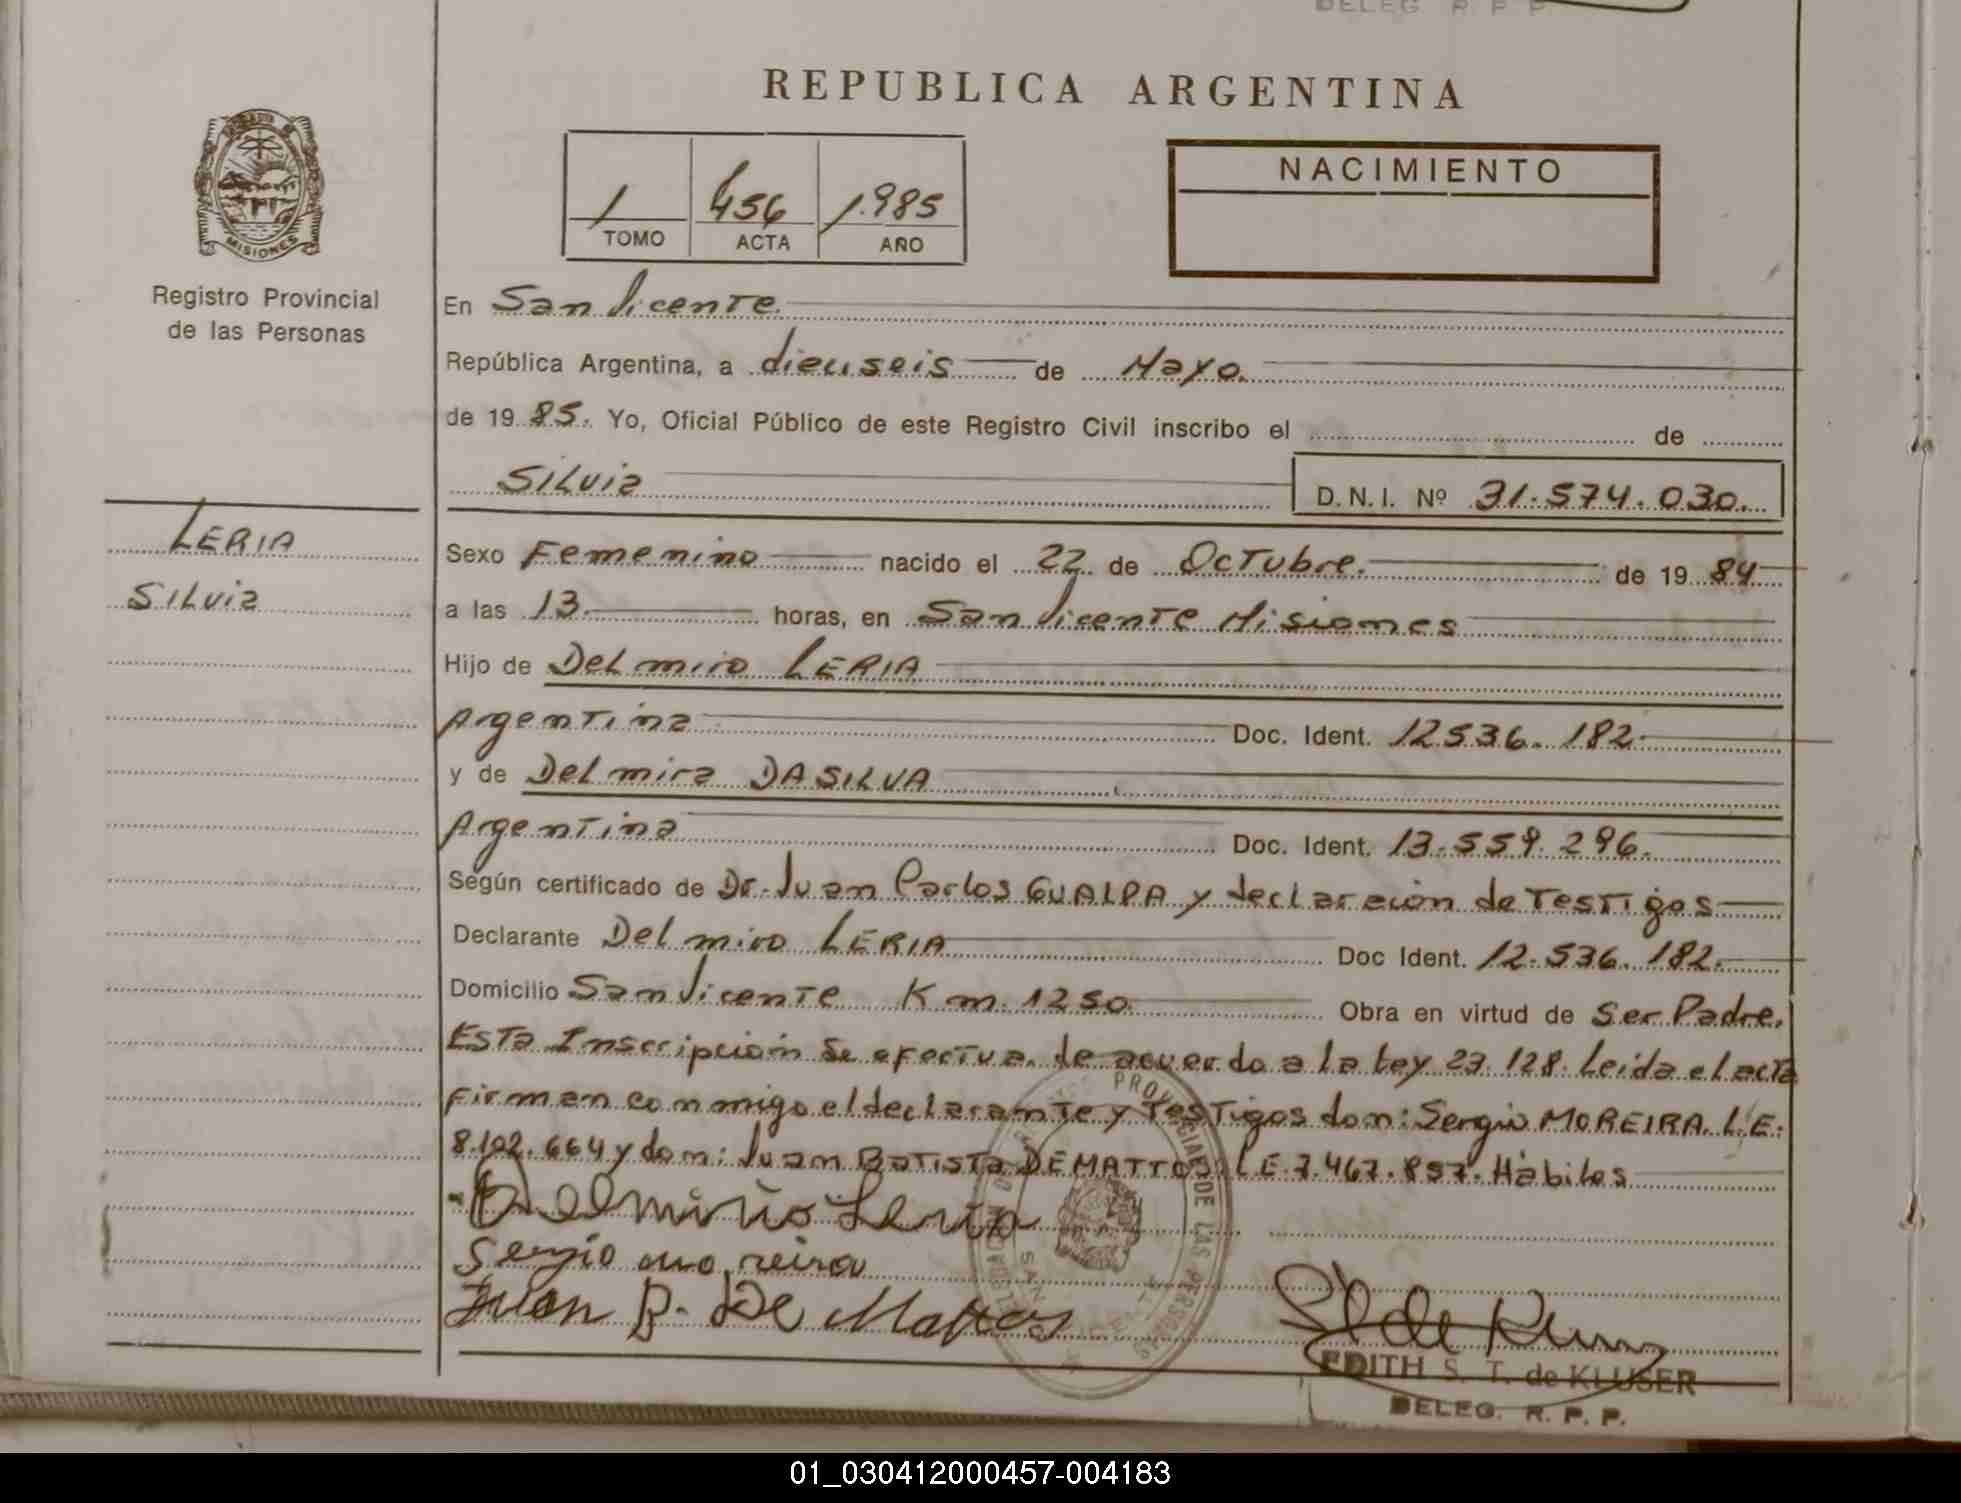 DELEG. R. P. P.
REPUBLICA ARGENTINA
NACIMIENTO
1 456 1.985
TOMO ACTA AÑO
MISIONES
Registro Provincial
de las Personas
En San Vicente
República Argentina, a dieciseis de Mayo.
de 19 85. Yo, Oficial Público de este Registro Civil inscribo el de
Silvia D.N.I. Nº 31.574.030.
LERIA
Silvia
Sexo Femenino nacido el 22 de Octubre. de 19 84
a las 13. horas, en San Vicente Misiones
Hijo de Delmiro LERIA
Argentina Doc. Ident. 12.536.182.
y de Delmira DASILVA
Argentina Doc. Ident. 13.559.296.
Según certificado de Dr. Juan Carlos GUALPA y declaración de Testigos
Declarante Delmiro LERIA Doc Ident. 12.536.182.
Domicilio San Vicente Km. 1250 Obra en virtud de Ser Padre.
Esta Inscripción se efectua de acuerdo a la Ley 23.128. Leída el acta
firman conmigo el declarante y Testigos don: Sergio MOREIRA. L.E.
8.102.664 y don: Juan Batista DEMATTOS L.E. 7.467.857. Hábiles
Delmirio Leria
Sergio moreira
Juan B. De Mattos
PROVINCIAL DE LAS PERSONAS
EDITH S. T. de KLUSER
DELEG. R. P. P.
01_030412000457-004183